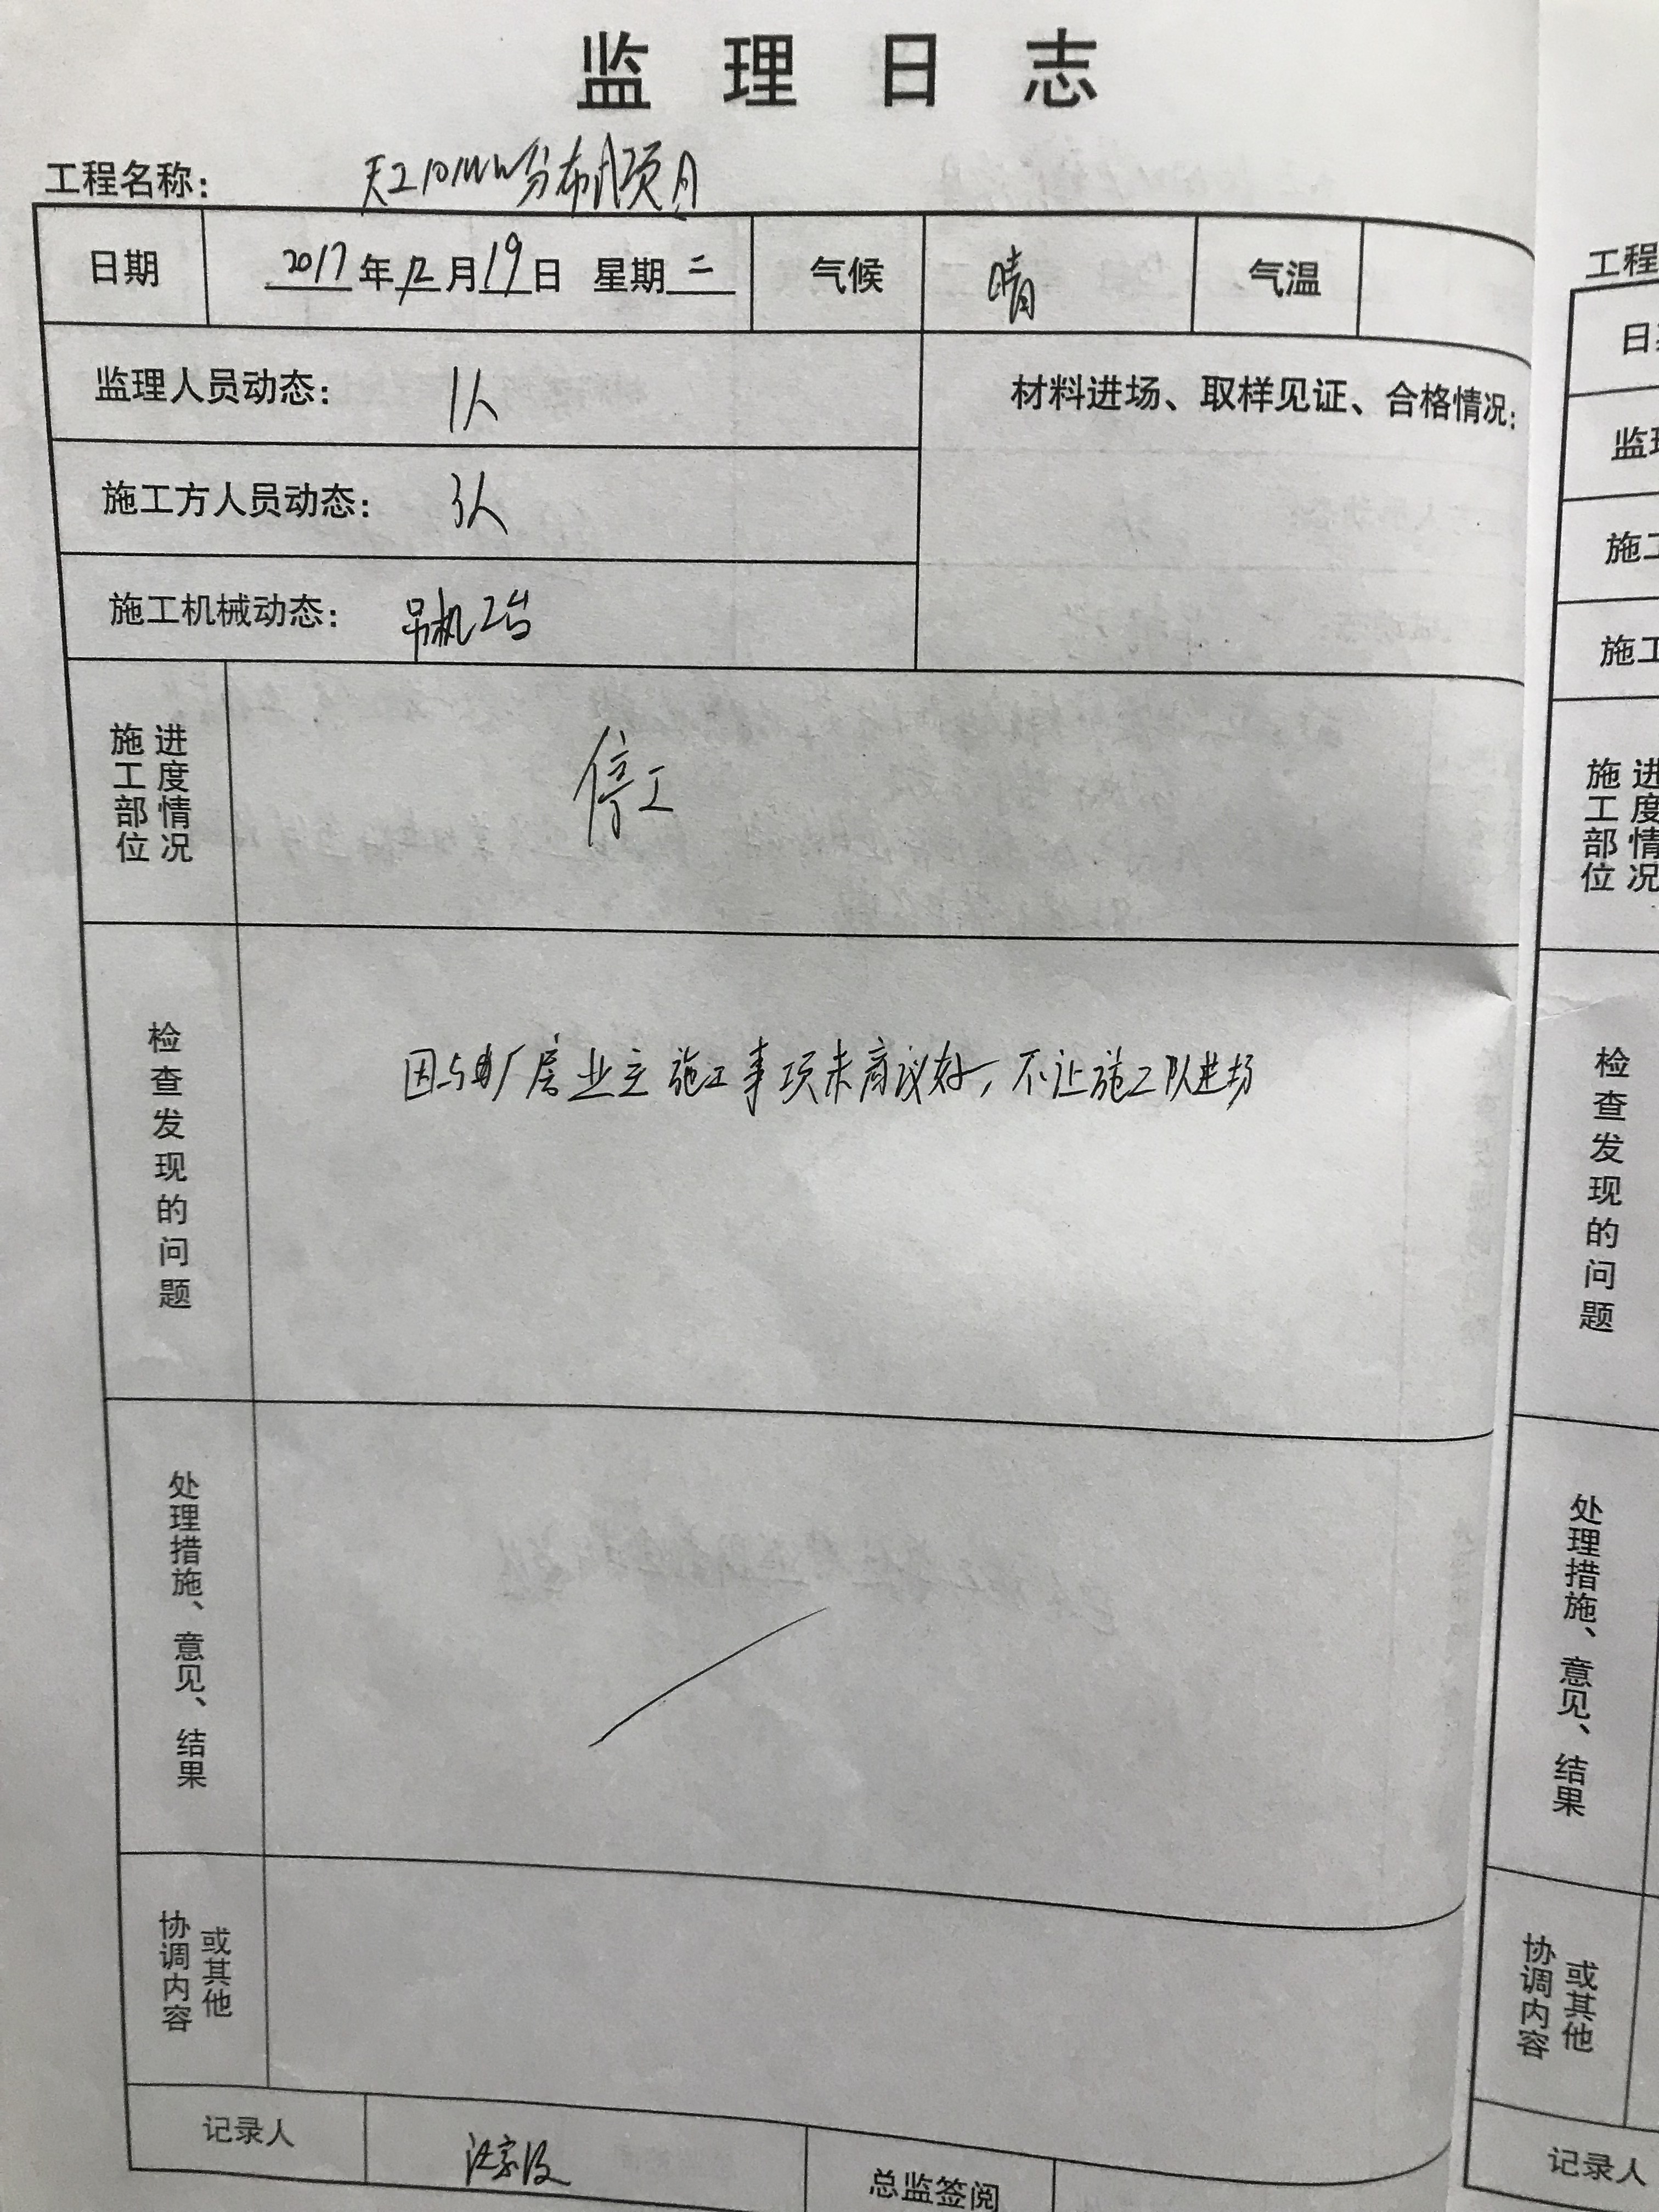 监理日志
工程名称： 天工10MW分布式项目
日期 2017年12月19日 星期二 气候 晴 气温
监理人员动态： 1人
材料进场、取样见证、合格情况：
施工方人员动态： 3人
施工机械动态： 吊机2台
施工部位
进度情况
停工
检查发现的问题
因与厂房业主施工事项未商议好，不让施工队进场
处理措施、意见、结果
协调内容
或其他
记录人
总监签阅
工程
监理
施工
施工
施工部位
进度情况
检查发现的问题
处理措施、意见、结果
协调内容
或其他
记录人